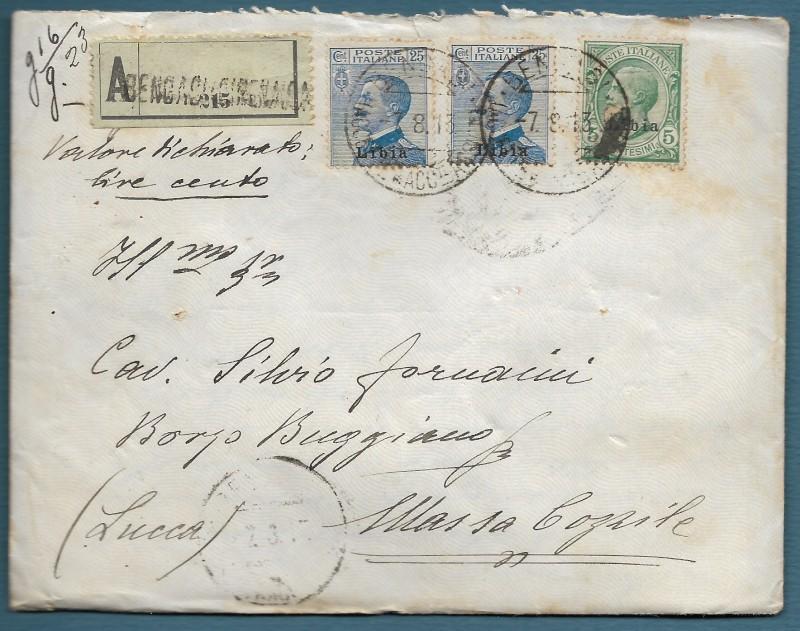 916/23
g.
A BENGASI-CIRENAICA
215
Valore dichiarato;
lire cento
POSTE ITALIANE 25
Libia
POSTE ITALIANE 25
Libia
8.13
-7.8.13
POSTE ITALIANE
Libia
5
CENTESIMI
Ill mo Sr
Cav. Silvio Fornaini
Borgo Buggiano
(Lucca) Massa Cozzile